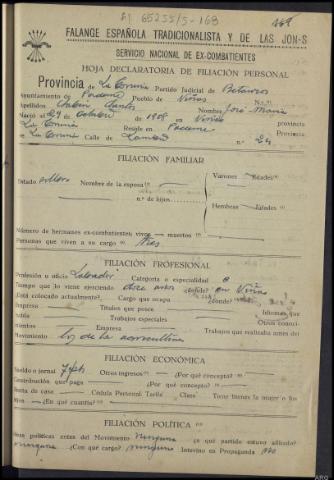 A1 65255/5-168
168
FALANGE ESPAÑOLA TRADICIONALISTA Y DE LAS JON-S
SERVICIO NACIONAL DE EX-COMBATIENTES
HOJA DECLARATORIA DE FILIACIÓN PERSONAL
Provincia de La Coruña Partido Judicial de Betanzos
Ayuntamiento de Paderne Pueblo de Viñas
Apellidos Santos Nombre José María
Nació el 29 de Octubre de 1908 en Viñas provincia
La Coruña Reside en Paderne Provincia
de La Coruña Calle de n.º 24
FILIACIÓN FAMILIAR
Estado soltero Nombre de la esposa
Varones Edades
n.º de hijos
Hembras Edades
Número de hermanos ex-combatientes vivos — muertos
Personas que viven a su cargo tres
FILIACIÓN PROFESIONAL
Profesión u oficio Labrador Categoría o especialidad
Tiempo que lo viene ejerciendo doce años ¿dónde? en Viñas
Está colocado actualmente? Cargo que ocupa ¿dónde?
Empresa Títulos que posee Idiomas que
Trabajos especiales Otros conoci-
mientos Empresa Trabajos que realizaba antes del
Movimiento los de la agricultura
FILIACIÓN ECONÓMICA
Sueldo o jornal 7 pts Otros ingresos ¿Por qué concepto?
Contribución que paga ¿Por qué concepto?
Renta de casa Cédula Personal Tarifa Clase Tiene bienes la mujer o los
hijos ¿En qué cuantía?
FILIACIÓN POLÍTICA
políticas antes del Movimiento ninguna ¿a qué partido estuvo afiliado?
ninguno ¿Con qué cargo? ninguno Intervino en Propaganda no